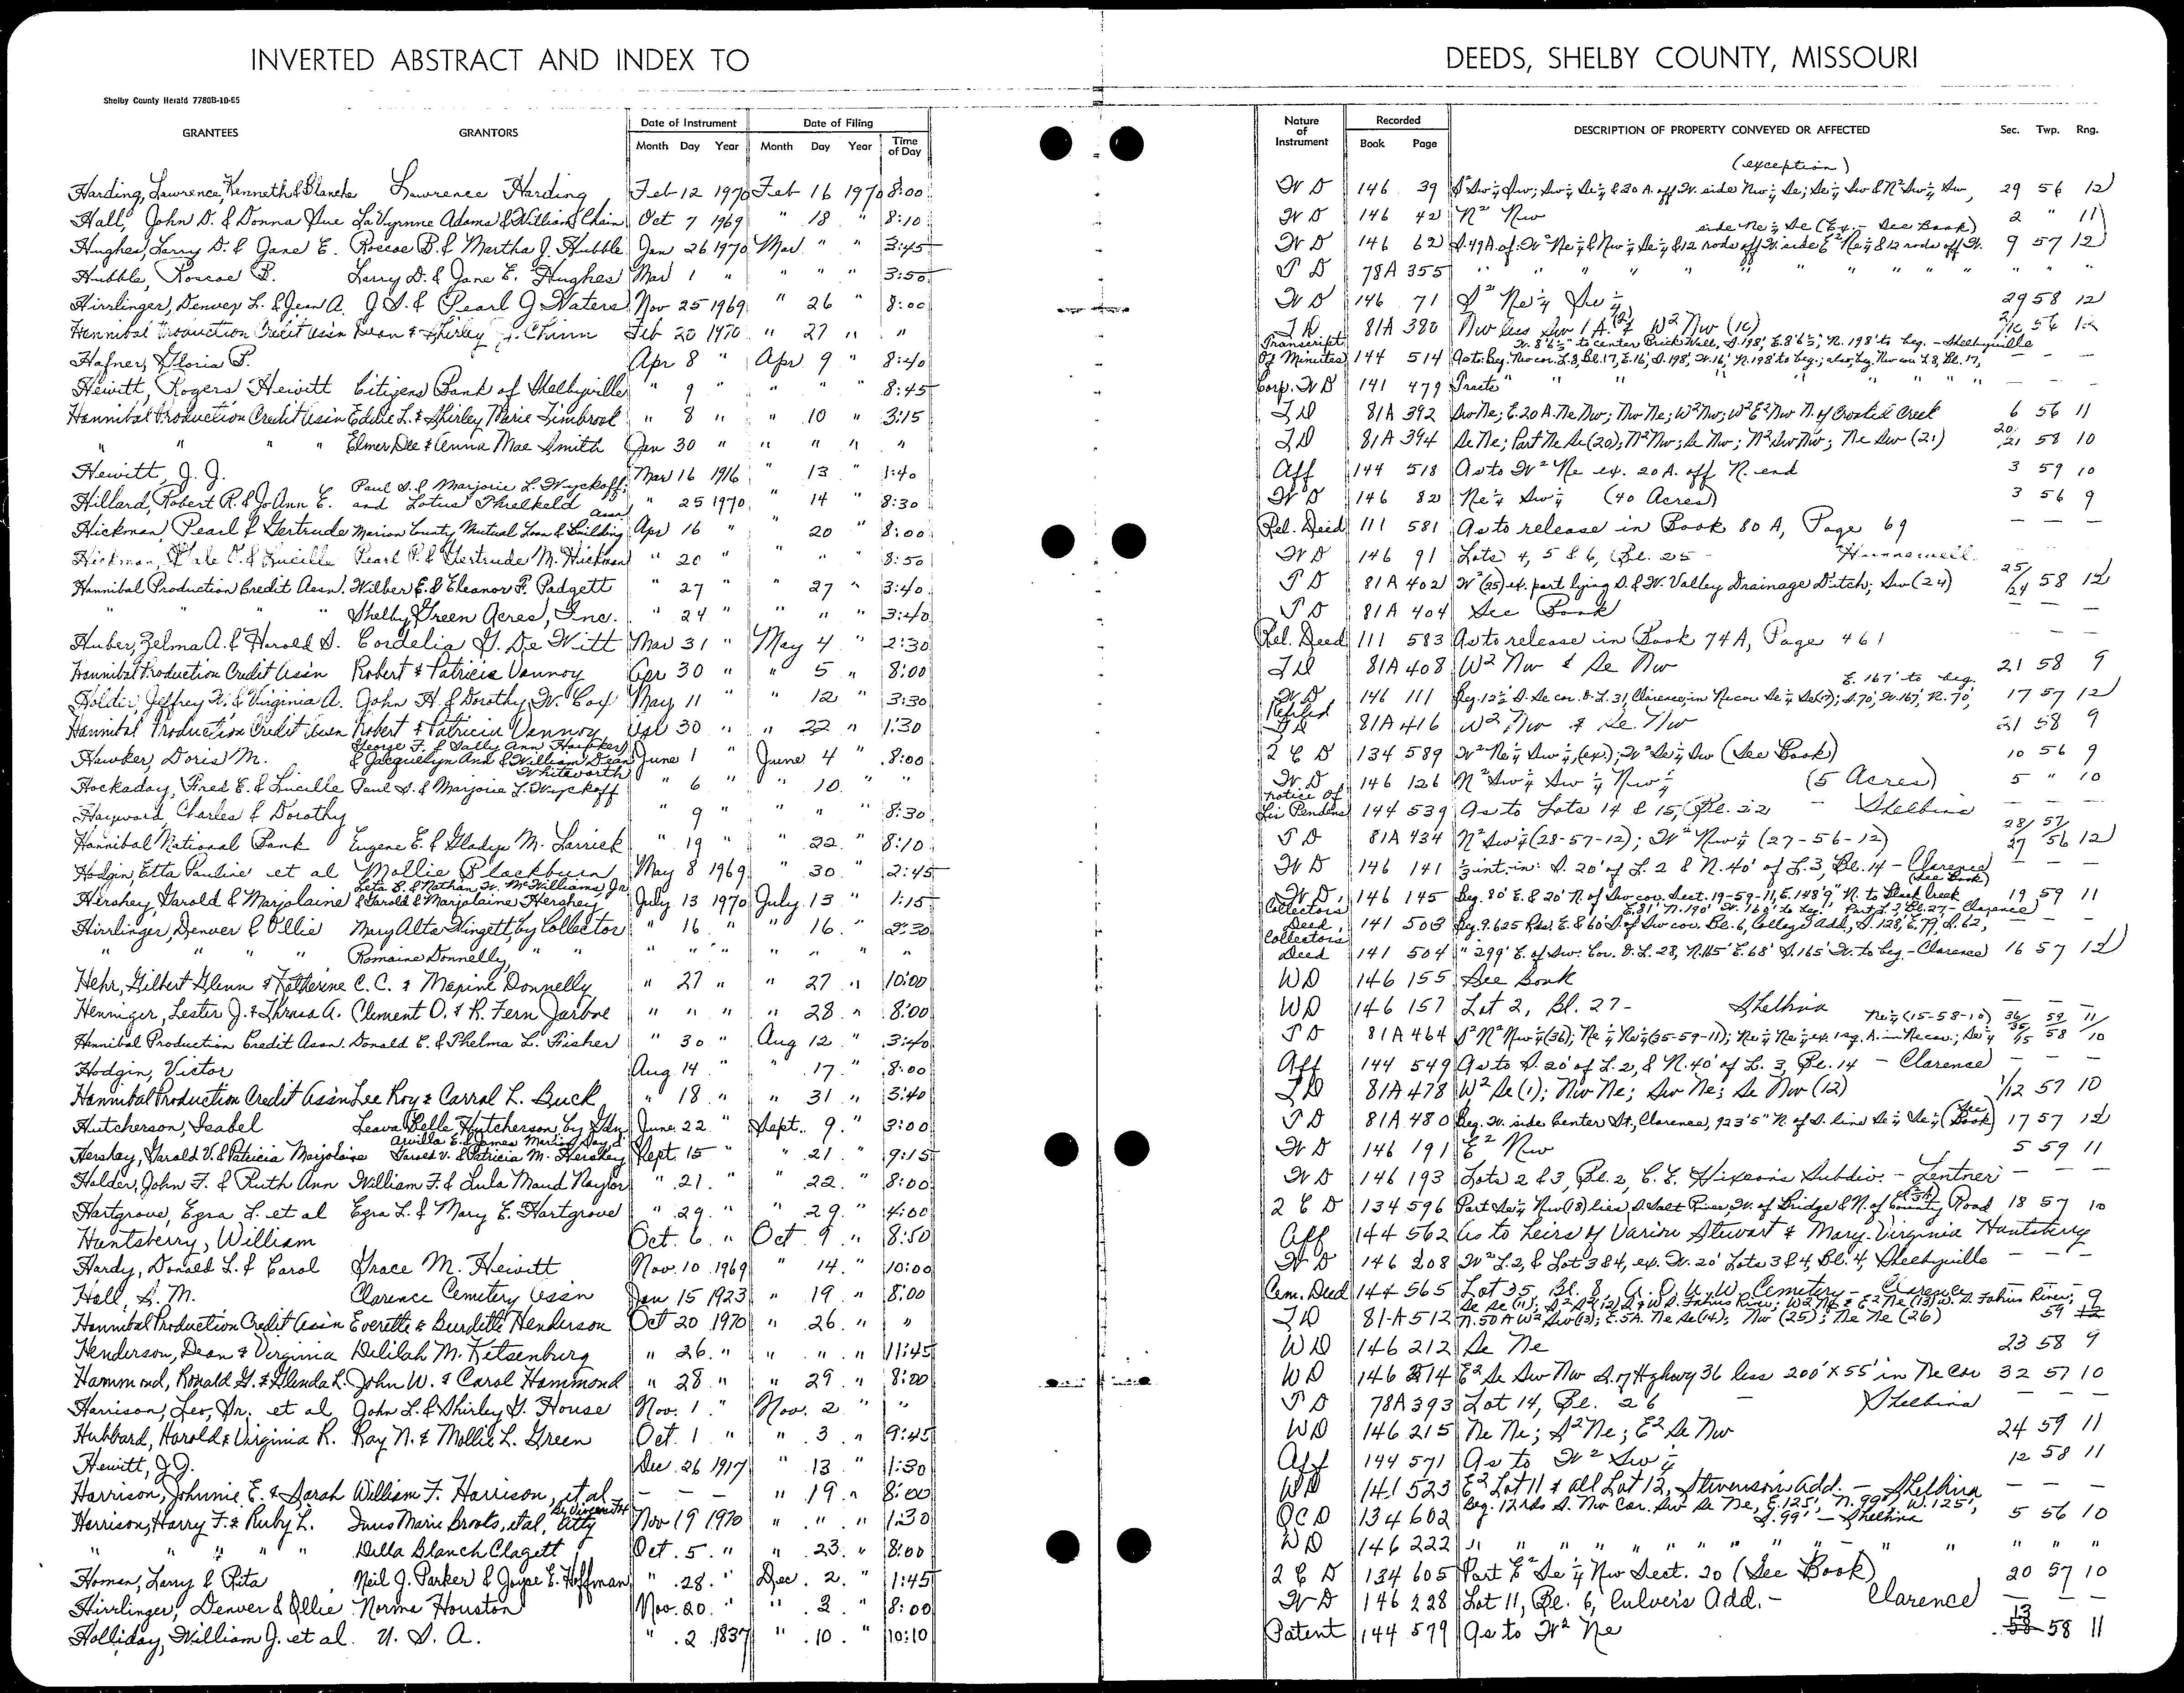 INVERTED ABSTRACT AND INDEX TO DEEDS, SHELBY COUNTY, MISSOURI
Shelby County Herald 7780B-10-65
GRANTEES GRANTORS Date of Instrument Month Day Year Date of Filing Month Day Year Time of Day Nature of Instrument Recorded Book Page DESCRIPTION OF PROPERTY CONVEYED OR AFFECTED Sec. Twp. Rng.
(exception)
Harding, Lawrence, Kenneth & Blanche Lawrence Harding Feb 12 1970 Feb 16 1970 8:00 W D 146 39 S² Sw¼ Sw; Sw¼ Se¼ & 30 A. off W. side Nw¼ Se; Se¼ Sw & N² Sw¼ Sw, 29 56 12
Hall, John D. & Donna Sue LaVynne Adams & William Chain Oct 7 1969 " 18 " 8:10 W D 146 42 N² Nw 2 " 11
side Ne¼ Se (Ex. - See Book)
Hughes, Larry D. & Jane E. Roscoe B. & Martha J. Hubble Jan 26 1970 Mar " " 3:45 W D 146 62 S. 49 A. of W² Ne¼ & Nw¼ Se¼ & 12 rods off W. side E² Ne¼ & 12 rods off W. 9 57 12
Hubble, Roscoe B. Larry D. & Jane E. Hughes Mar 1 " " " " 3:50 T D 78A 355 " " " " " " " " " " " "
Hirrlinger, Denver L. & Jean A. J S. & Pearl J Waters Nov 25 1969 " 26 " 8:00 W D 146 71 S² Ne¼ Sw¼ 29 58 12
Hannibal Production Credit Ass'n & Shirley J. Chinn Feb 20 1970 " 27 " " T D 81A 380 Nw less Sw 1 A. & W² Nw (10) 56 12
Transcript W. 8'6½" to center Brick Wall, S. 198', E. 8'6½", N. 198' to beg. - Shelbyville
Hafner, Gloria P. Apr 8 " Apr 9 " 8:40 Of Minutes 144 514 As to Beg. Nw cor. L. 8, Bl. 17, E. 16', S. 198', W. 16', N. 198' to beg.; also, beg. Nw cor. L 8, Bl. 17, — — —
Hewitt, Rogers Hewitt Citizens Bank of Shelbyville " 9 " " " " 8:45 Corp. W D 141 479 Tracts " " " " " " " " — — —
Hannibal Production Credit Ass'n Eddie L. & Shirley Marie Timbrook " 8 " " 10 " 3:15 T D 81A 392 Sw Ne; E. 20 A. Ne Nw; Nw Ne; W² Nw; W² E² Nw N. of Crooked Creek 6 56 11
" " " " Elmer Dee & Anna Mae Smith Jan 30 " " " " " T D 81A 394 Se Ne; Part Ne Se (20); N² Nw; Se Nw; N² Sw Nw; Ne Sw (21) 20/21 58 10
Hewitt, J. J. Mar 16 1916 " 13 " 1:40 Aff 144 518 As to W² Ne ex. 20 A. off N. end 3 59 10
Paul S. & Marjorie L. Wyckoff,
Hillard, Robert R. & JoAnn E. and Lotus Threlkeld " 25 1970 " 14 " 8:30 W D 146 82 Ne¼ Sw¼ (40 Acres) 3 56 9
Assn
Hickman, Pearl & Gertrude Marion County Mutual Loan & Building Apr 16 " " 20 " 8:00 Rel. Deed 111 581 As to release in Book 80 A, Page 69 — — —
Hickman, Dale O. & Lucille Pearl P. & Gertrude M. Hickman " 20 " " " " 8:50 W D 146 91 Lots 4, 5 & 6, Bl. 25 - Hunnewell
Hannibal Production Credit Assn. Wilber E. & Eleanor F. Padgett " 27 " 27 " 3:40 T D 81A 402 W² (25) ex. part lying S. & W. Valley Drainage Ditch; Sw (24) 25/24 58 12
" " " " Shelby Green Acres, Inc. " 24 " " " " 3:40 T D 81A 404 See Book — — —
Huber, Zelma A. & Harold S. Cordelia G. De Witt Mar 31 " May 4 " 2:30 Rel. Deed 111 583 As to release in Book 74A, Page 461 — — —
Hannibal Production Credit Ass'n Robert & Patricia Vannoy Apr 30 " " 5 " 8:00 T D 81A 408 W² Nw & Se Nw 21 58 9
E. 167' to beg.
Holder, Jeffrey W. & Virginia A. John H. & Dorothy W. Cox May 11 " " 12 " 3:30 W D 146 111 Beg. 12½' S. Se cor. O. L. 31, Clarence, in Ne cor Se¼ Se(7); S. 70', W. 167', N. 70', 17 57 12
Hannibal Production Credit Assn Robert & Patricia Vannoy Apl 30 " " 22 " 1:30 Refiled T D 81A 416 W² Nw & Se Nw 21 58 9
George F. & Sally Ann Hawker,
Hawker, Doris M. & Jacquelyn Ann & William Dean Whitworth June 1 " June 4 " 8:00 Q C D 134 589 W² Ne¼ Sw¼ (ex.); W² Se¼ Sw (See Book) 10 56 9
Hockaday, Fred E. & Lucille Paul S. & Marjorie L. Wyckoff " 6 " " 10 " " W D 146 126 N² Sw¼ Sw¼ Nw¼ (5 Acres) 5 " 10
Hayward, Charles & Dorothy " 9 " " " " 8:30 Notice of Lis Pendens 144 539 As to Lots 14 & 15, Bl. 22 - Shelbina — — —
Hannibal National Bank Eugene E. & Gladys M. Larrick " 19 " " 22 " 8:10 T D 81A 434 N² Sw¼ (28-57-12); W² Nw¼ (27-56-12) 28/27 57/56 12
Hodgin, Etta Pauline et al Mollie Blackburn May 8 1969 " 30 " 2:45 W D 146 141 ½ int. in: S. 20' of L. 2 & N. 40' of L. 3, Bl. 14 - Clarence
Leta E. & Nathan W. McWilliams Jr (See Book)
Hershey, Garold & Marjolaine & Garold & Marjolaine Hershey July 13 1970 July 13 " 1:15 W D, 146 145 Beg. 80' E. & 20' N. of Sw cor. Sect. 19-59-11, E. 148'9", N. to Black Creek 19 59 11
E. 81', N. 190', W. 168' to beg. Part L. 2, Bl. 27 - Clarence
Hirrlinger, Denver & Ollie Mary Alta Wingett, by Collector " 16 " " 16 " 2:30 Collectors Deed, 141 503 Beg. 9.625 Rds. E. & 60' S. of Sw cor. Bl. 6, College Add., S. 128', E. 79', S. 62', — — —
" " " " Romaine Donnelly, " " " " " " " " " Collectors Deed 141 504 " 299' E. of Sw. Cor. O. L. 28, N. 165' E. 68' S. 165' W. to beg. - Clarence 16 57 12
Hehr, Gilbert Glenn & Katherine C. C. & Maxine Donnelly " 27 " " 27 " 10:00 WD 146 155 See Book
Henniger, Lester J. & Theresa A. Clement O. & R. Fern Jarboe " " " " 28 " 8:00 WD 146 157 Lot 2, Bl. 27 - Shelbina — — —
Ne¼ (15-58-10)
Hannibal Production Credit Assn. Donald E. & Thelma L. Fisher " 30 " Aug 12 " 3:40 T D 81A 464 S² N² Nw¼ (36); Ne¼ Ne¼ (35-59-11); Ne¼ Ne¼ ex. 1 sq. A. in Ne cor.; Se¼ 36/35/15 59/58 11/10
Hodgin, Victor Aug 14 " " 17 " 8:00 Aff 144 549 As to S. 20' of L. 2, & N. 40' of L. 3, Bl. 14 - Clarence — — —
Hannibal Production Credit Ass'n Lee Roy & Carrol L. Buck " 18 " " 31 " 3:40 T D 81A 478 W² Se (1); Nw Ne; Sw Ne; Se Nw (12) 1/12 57 10
Hutcherson, Isabel Leava Belle Hutcherson, by Gdn June 22 " Sept. 9 " 3:00 T D 81A 480 Beg. W. side Center St., Clarence, 923'5" N. of S. line Se¼ Se¼ (See Book) 17 57 12
Arvilla E. & James Marling Day &
Hershey, Garold V. & Patricia Marjolaine Garold V. & Patricia M. Hershey Sept. 15 " " 21 " 9:15 W D 146 191 E² Nw 5 59 11
Holder, John F. & Ruth Ann William F. & Lula Maud Naylor " 21 " " 22 " 8:00 W D 146 193 Lots 2 & 3, Bl. 2, C. E. Hixson's Subdiv. - Lentner — — —
Hartgrove, Ezra L. et al Ezra L. & Mary E. Hartgrove " 29 " " 29 " 4:00 Q C D 134 596 Part Se¼ Nw (18) lies S. Salt River, W. of Bridge & N. of County Road 18 57 10
Huntsberry, William Oct. 6 " Oct 9 " 8:50 Aff 144 562 As to heirs of Varion Stewart & Mary Virginia Huntsberry
Hardy, Donald L. & Carol Grace M. Hewitt Nov. 10 1969 " 14 " 10:00 W D 146 208 W² L. 2, & Lot 3 & 4, ex. W. 20' Lots 3 & 4, Bl. 4, Shelbyville — — —
Hall, S. M. Clarence Cemetery Ass'n Jan 15 1923 " 19 " 8:00 Cem. Deed 144 565 Lot 35, Bl. 8, A. O. U. W. Cemetery - Clarence
Se Se (11); S² S² (12) S & W S. Fabius River; W² Ne & E² Ne (13) W. S. Fabius River; 9
Hannibal Production Credit Ass'n Everette & Burdette Henderson Oct 20 1970 " 26 " " T D 81-A 512 N. 50 A W² Sw (13); E. 5A. Ne Se (14); Nw (25); Ne Ne (26) 59 12
Henderson, Dean & Virginia Delilah M. Kitsenburg " 26 " " " " 11:45 WD 146 212 Se Ne 23 58 9
Hammond, Ronald G. & Glenda L. John W. & Carol Hammond " 28 " " 29 " 8:00 WD 146 214 E² Se Sw Nw S. of Highway 36 less 200' X 55' in Ne Cor 32 57 10
Harrison, Leo, Sr. et al John L. & Shirley G. House Nov. 1 " Nov. 2 " " T D 78A 393 Lot 14, Bl. 26 - Shelbina — — —
Hubbard, Harold & Virginia R. Ray N. & Mollie L. Green Oct. 1 " " 3 " 9:45 WD 146 215 Ne Ne; S² Ne; E² Se Nw 24 59 11
Hewitt, J. J. Dec. 26 1917 " 13 " 1:30 Aff 144 571 As to W² Sw¼ 12 58 11
Harrison, Johnnie E. & Sarah William F. Harrison, et al — — — " 19 " 8:00 WD 141 523 E² Lot 11 & all Lot 12, Stevenson Add. - Shelbina — — —
Beg. 12 rds S. Nw Cor. Sw Se Ne, E. 125', N. 99', W. 125',
Harrison, Harry F. & Ruby L. Inus Marie Brooks, et al, Atty Nov 19 1970 " " " 1:30 QCD 134 602 S. 99' - Shelbina 5 56 10
" " " " " Della Blanch Clagett Oct. 5 " " 23 " 8:00 WD 146 222 " " " " " " " " " " " " "
Homan, Larry & Rita Neil J. Parker & Joyce E. Hoffman " 28 " Dec. 2 " 1:45 Q C D 134 605 Part E² Se¼ Nw Sect. 20 (See Book) 20 57 10
Hirrlinger, Denver & Ollie Norma Houston Nov. 20 " " 2 " 8:00 W D 146 228 Lot 11, Bl. 6, Culver's Add. - Clarence — — —
Holliday, William J. et al. U. S. A. " 2 1837 " 10 " 10:10 Patent 144 579 As to W² Ne 13 58 11